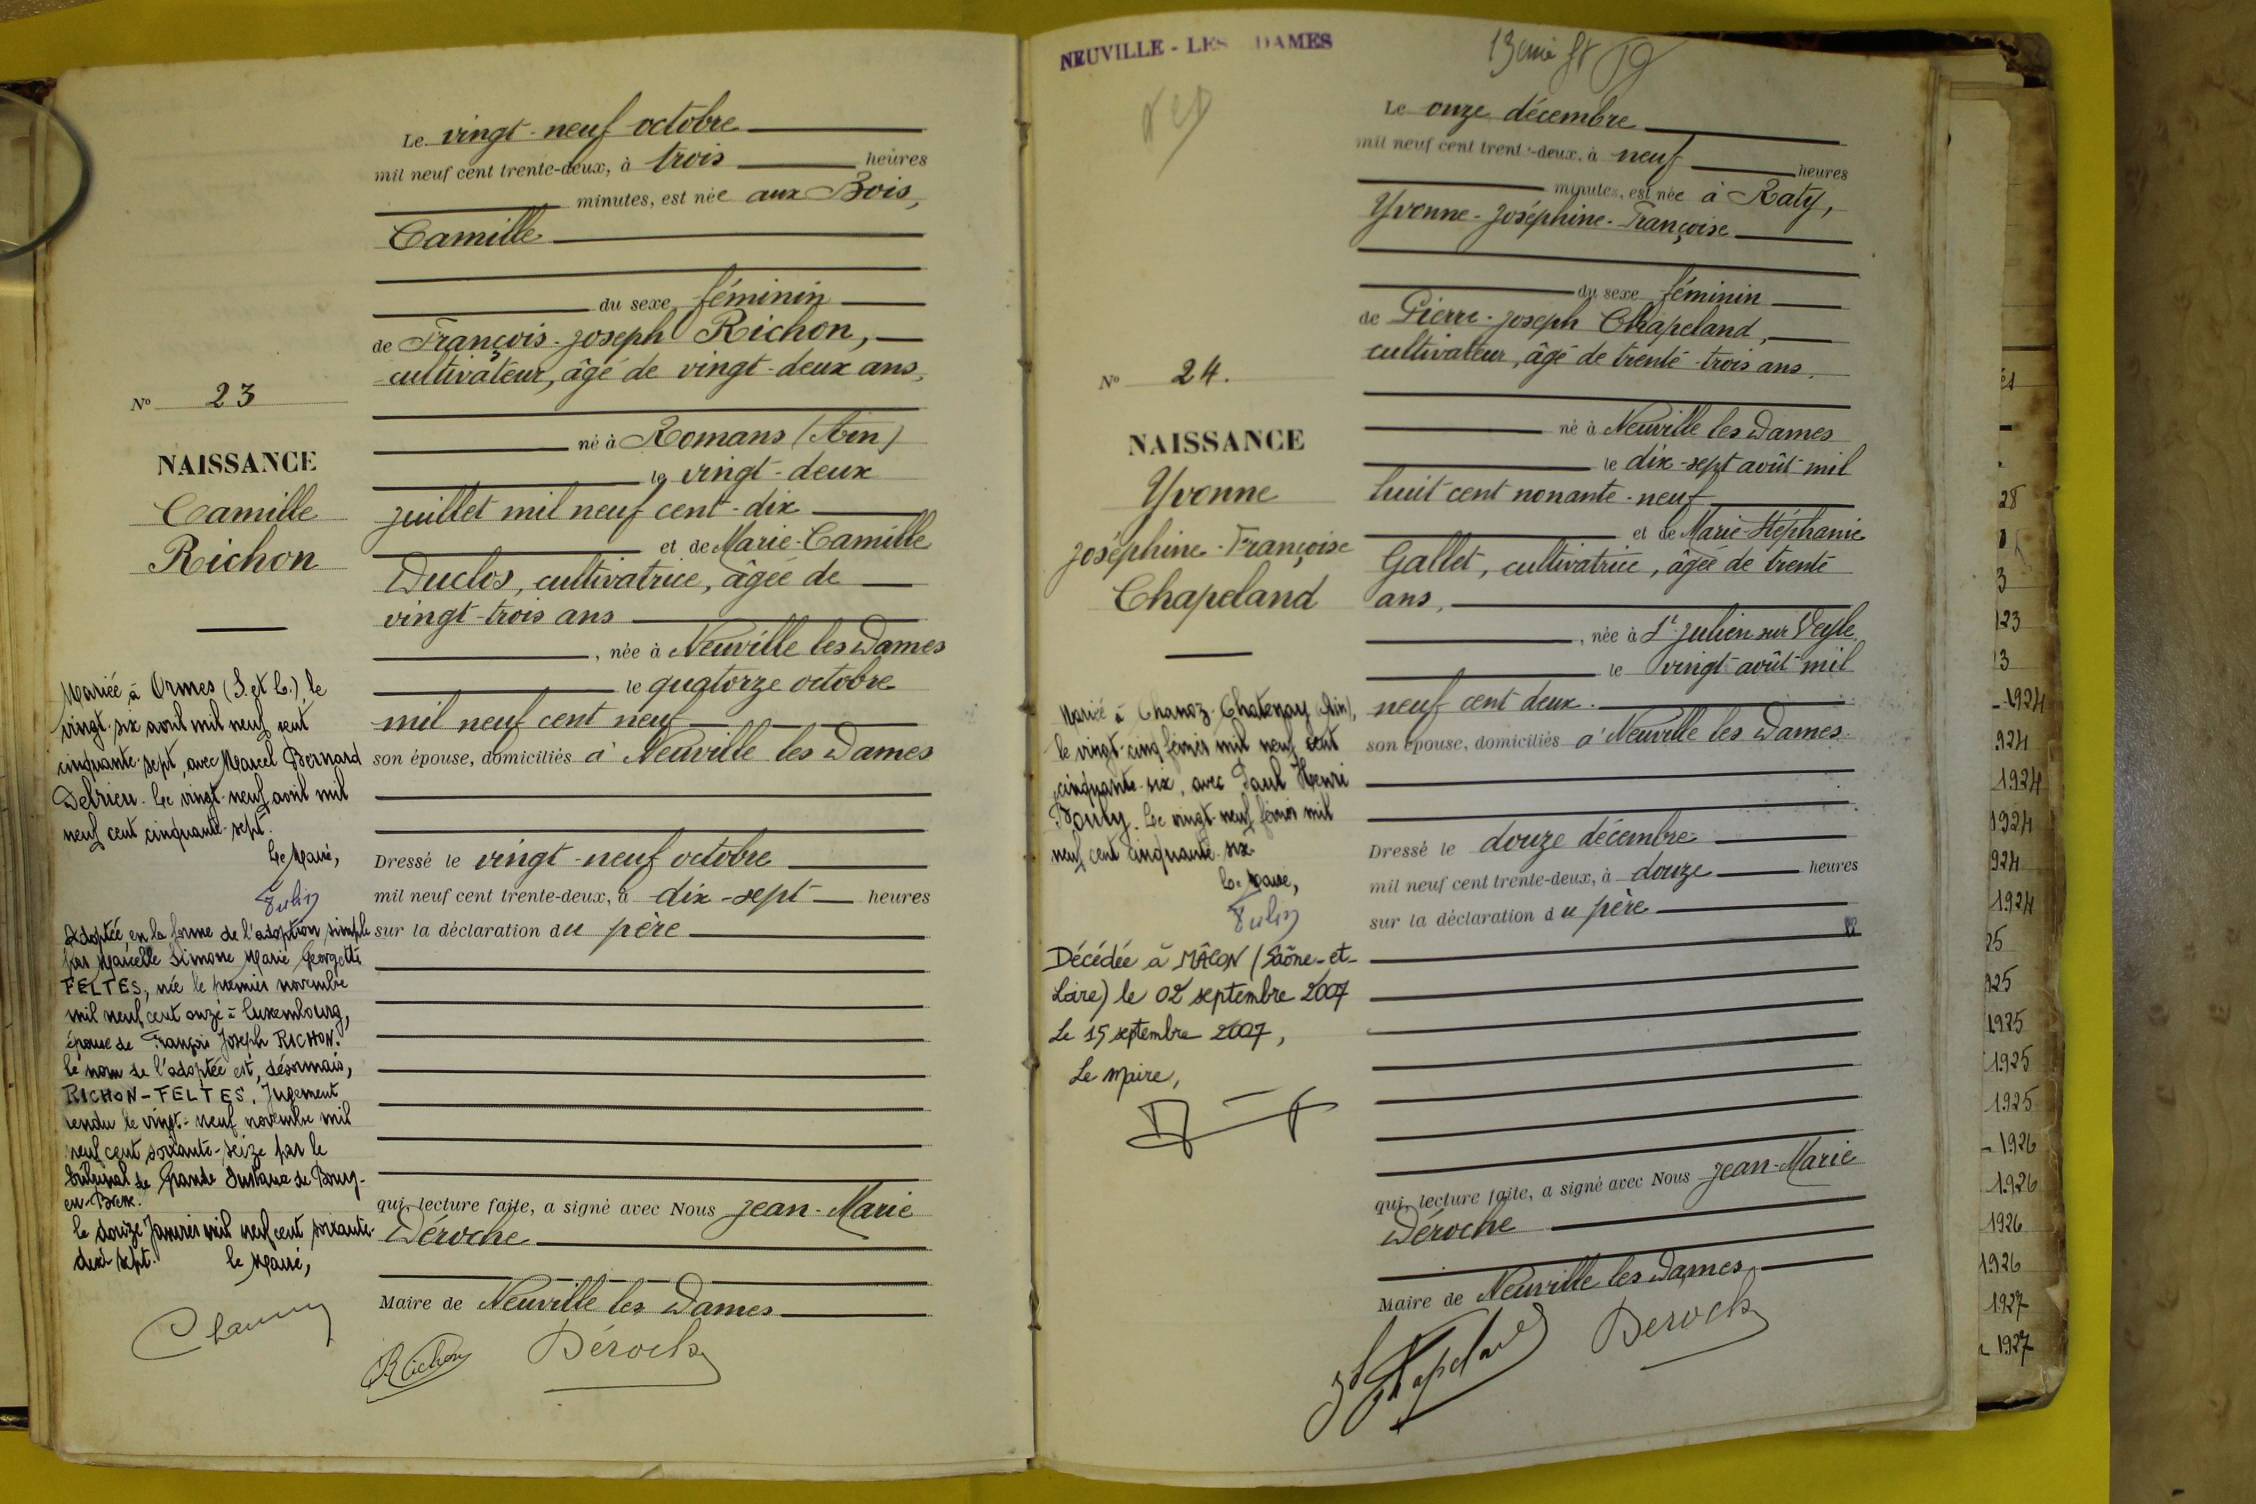 Le vingt-neuf octobre
mil neuf cent trente-deux, à trois heures
minutes, est née aux Bois,
Camille
du sexe féminin
de François-Joseph Richon,
cultivateur, âgé de vingt-deux ans,
né à Romans (Ain)
le vingt-deux
juillet mil neuf cent-dix
et de Marie-Camille
Duclos, cultivatrice, âgée de
vingt-trois ans
, née à Neuville les Dames
le quatorze octobre
mil neuf cent neuf
son épouse, domiciliés à Neuville les Dames
Dressé le vingt-neuf octobre
mil neuf cent trente-deux, à dix-sept heures
sur la déclaration du père
qui, lecture faite, a signé avec Nous Jean-Marie
Déroche
Maire de Neuville les Dames
Richon Déroche
N° 23
NAISSANCE
Camille
Richon
Mariée à Ormes (S. et L.), le
vingt-six avril mil neuf cent
cinquante-sept, avec Marcel Bernard
Debrieu. Le vingt-neuf avril mil
neuf cent cinquante-sept.
Le Maire,
Adoptée, en la forme de l'adoption simple
par Marcelle Simone Marie Georgette
FELTES, née le premier novembre
mil neuf cent onze à Luxembourg,
épouse de François Joseph RICHON.
Le nom de l'adoptée est, désormais,
RICHON-FELTES. Jugement
rendu le vingt-neuf novembre mil
neuf cent soixante-seize par le
Tribunal de Grande Instance de Bourg-
en-Bresse.
le douze Janvier mil neuf cent soixante-
dix sept.
le Maire,
NEUVILLE-LES DAMES
13eme
Le onze décembre
mil neuf cent trente-deux, à neuf heures
minutes, est née à Raty,
Yvonne-Joséphine-Françoise
du sexe féminin
de Pierre-Joseph Chapeland,
cultivateur, âgé de trente-trois ans,
né à Neuville les Dames
le dix-sept août mil
huit cent nonante-neuf
et de Marie-Stéphanie
Gallet, cultivatrice, âgée de trente
ans,
, née à St Julien sur Veyle
le vingt août mil
neuf cent deux.
son épouse, domiciliés à Neuville les Dames.
Dressé le douze décembre
mil neuf cent trente-deux, à douze heures
sur la déclaration du père
qui, lecture faite, a signé avec Nous Jean-Marie
Déroche
Maire de Neuville les Dames
Chapeland Deroche
N° 24.
NAISSANCE
Yvonne
Joséphine-Françoise
Chapeland
Mariée à Chanoz-Chatenay (Ain),
le vingt-cinq février mil neuf cent
cinquante-six, avec Paul Henri
Pouly. Le vingt-neuf février mil
neuf cent cinquante-six.
Le Maire,
Décédée à MÂCON (Saône-et-
Loire) le 02 septembre 2007
Le 15 septembre 2007,
Le Maire,
28
3
123
13
1924
924
1924
1924
924
1924
25
925
1925
1925
1925
1926
1926
1926
1926
1927
1927